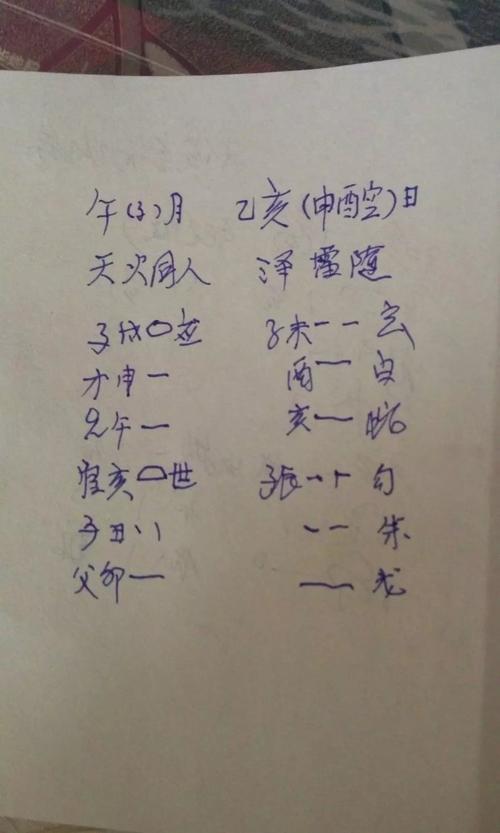 午(子)月 乙亥(申酉空)日
天火同人 泽雷随
子戌〇应 子未一一 玄
才申一 酉一 白
兄午一 亥一
官亥〇世 子辰一一 勾
子丑、、 一一 朱
父卯一 一 龙